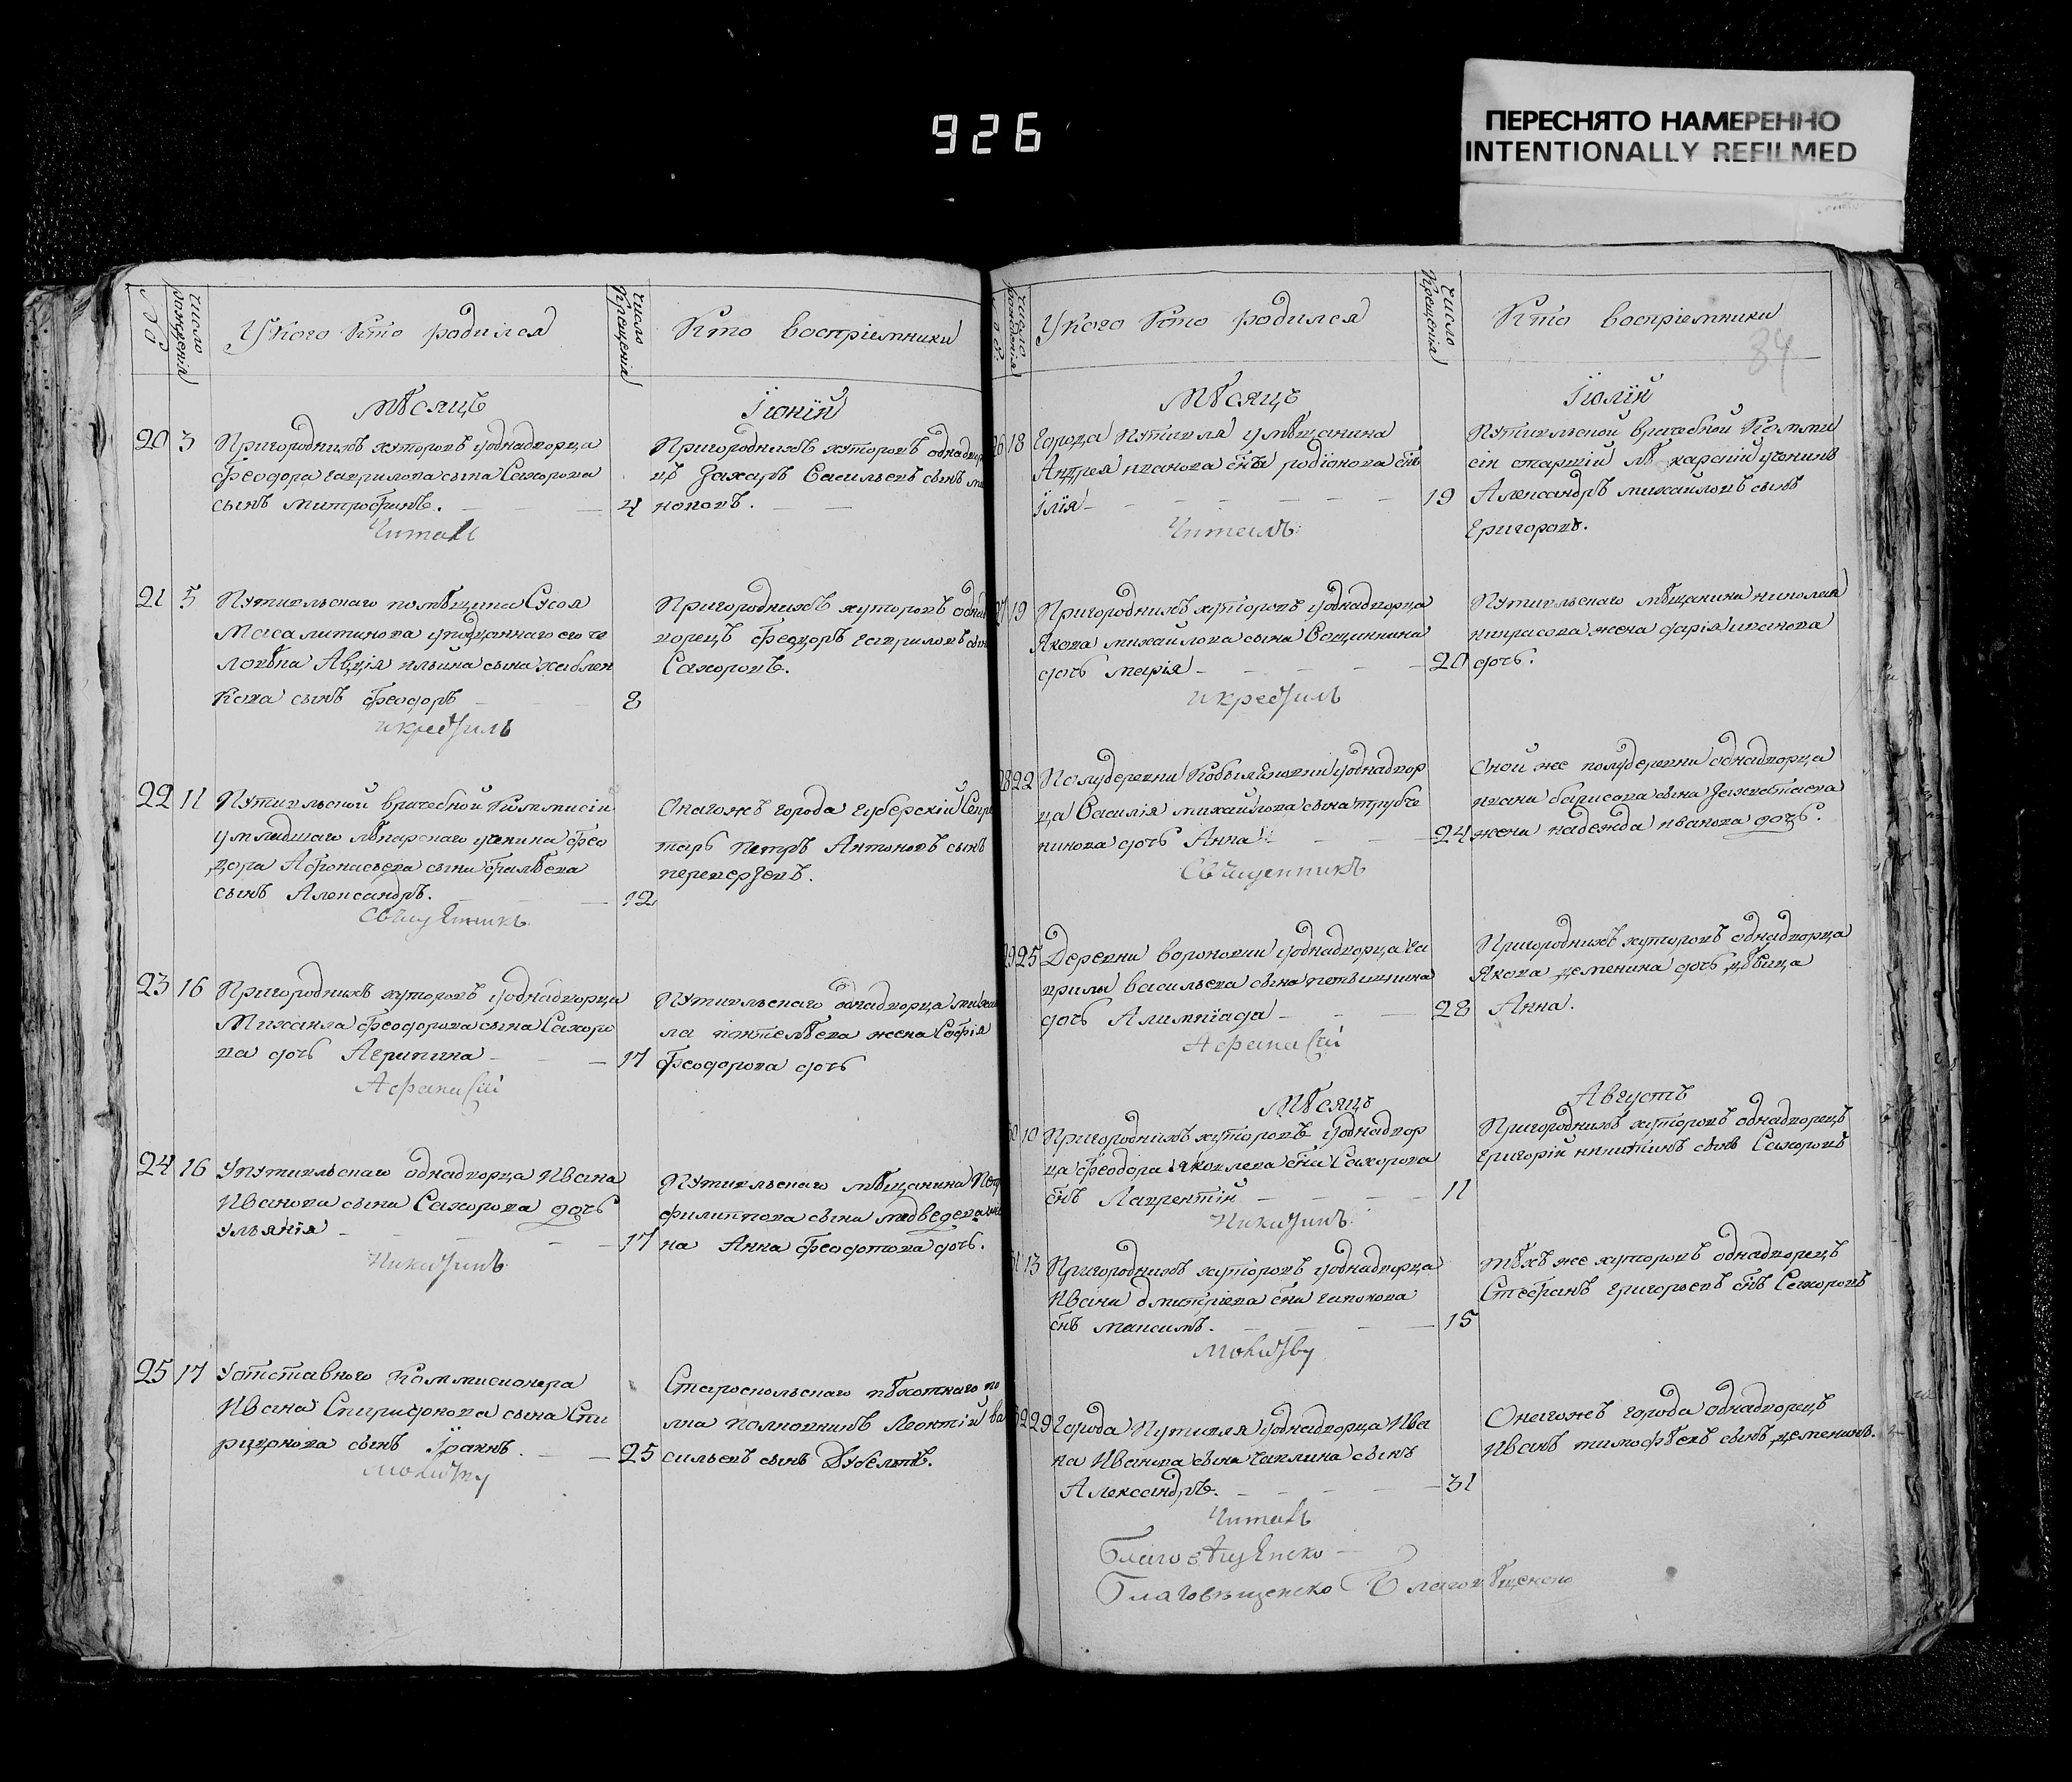 926
ПЕРЕСНЯТО НАМЕРЕННО
INTENTIONALLY REFILMED
Число рожденія
У Кого Кто родился
Число Крещенія
Кто воспріемники
Мѣсяцъ
Іюній
20 3 Пригороднихъ хуторовъ уоднадворца
Феодора гаврилова сына Сахорова
сынъ митрофанъ.
4
Читалъ
Пригороднихъ хуторовъ
Захаръ Васильевъ сынъ
ноновъ.
21 5 Путивльскаго помѣщика Сусоя
Масалитинова
ловѣка Авдія ильина сына
кова сынъ Феодоръ
8
и крестилъ
Пригороднихъ хуторовъ
ворецъ Феодоръ гавриловъ сынъ
Сахоровъ.
22 11 Путивльской врачебной Коммисіи
умладшаго лѣкарскаго ученика Фео
дора Афонасьева сына Филѣева
сынъ Александръ.
12
Священникъ
Онагожъ города Губерскій Секре
тарь Петръ Антоновъ сынъ
переверзевъ.
23 16 Пригороднихъ хуторовъ уоднадворца
Михаила Феодорова сына Сахоро
ва дочь Агрипина
17
Афанасій
Путивльскаго однадворца михаи
ла пантелѣева жена Софія
Феодорова дочь
24 16 Упутивльскаго однадворца Ивана
Иванова сына Сахорова дочь
Ульянія
17
Никитинъ
Путивльскаго мѣщанина
филиппова сына медведева
на Анна Феодотова дочь.
25 17 Уотставного Коммисионера
Ивана Спиридонова сына Спи
ридонова сынъ Іоаннъ.
25
молитву
Староскольскаго пѣхотнаго по
лка полковникъ Леонтій Ва
сильевъ сынъ Дубельтъ.
Число рожденія
У Кого Кто родился
Число Крещенія
Кто воспріемники
34
Мѣсяцъ
Іюлій
26 18 Города Путивля умѣщанина
Андрея иванова сна родіонова снъ
Ілія
19
Читалъ
Путивльской врачебной Комми
сіи старшій лѣкарскій ученикъ
Александръ михайловъ сынъ
Григоровъ.
27 19 Пригороднихъ хуторовъ уоднадворца
Якова михайлова сына Вощинкина
дочь марія
20
и крестилъ
Путивльскаго мѣщанина николая
жена дарія иванова
дочь.
28 22 Полудеревни уоднадвор
ца Василія михайлова сына трубче
нинова дочь Анна
24
Священникъ
Оной же полудеревни однадворца
ивана борисова сына
жена надежда иванова дочь.
29 25 Деревни вороновки уоднадворца га
врилы васильева сына
дочь Алимпіада
28
Афанасій
Пригороднихъ хуторовъ однадворца
Якова деменина дочь дѣвица
Анна.
Мѣсяцъ
Августъ
30 10 Пригороднихъ хуторовъ уоднадвор
ца Феодора яковлева сна Сахорова
снъ Лаврентій
11
Никитинъ
Пригороднихъ хуторовъ однадворецъ
Григорій никитинъ сынъ Сахоровъ
31 13 Пригороднихъ хуторовъ уоднадворца
Ивана дмитріева сна
снъ максимъ.
15
молитву
тѣхъ же хуторовъ однадворецъ
Стефанъ Григорьевъ снъ Сахоровъ
32 29 Города Путивля уоднадворца Ива
на Иванова сына Чаплина сынъ
Александръ.
31
Читалъ
Онагожъ города однадворецъ
Иванъ тимофѣевъ сынъ деменинъ.
Благовѣщенско
Благовѣщенско Благовѣщенско